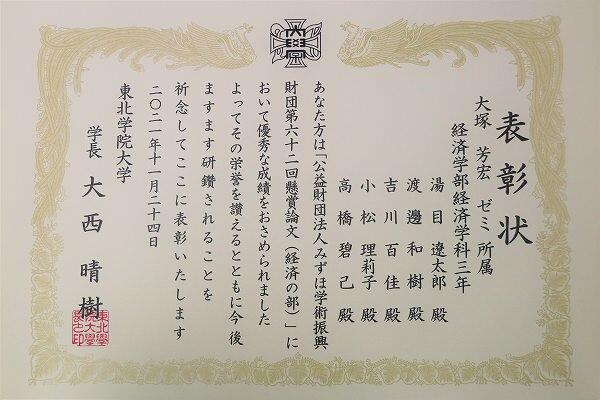 表彰状
大塚 芳宏 ゼミ 所属
経済学部経済学科三年
湯目 遼太郎 殿
渡邊 和樹 殿
吉川 百佳 殿
小松 理莉子 殿
高橋 碧己 殿
あなた方は「公益財団法人みずほ学術振興
財団第六十二回懸賞論文(経済の部)」に
おいて優秀な成績をおさめられました
よってその栄誉を讃えるとともに今後
ますます研鑽されることを
祈念してここに表彰いたします
二〇二一年十一月二十四日
東北学院大学
学長 大西 晴樹
東北學
院大學
長之印